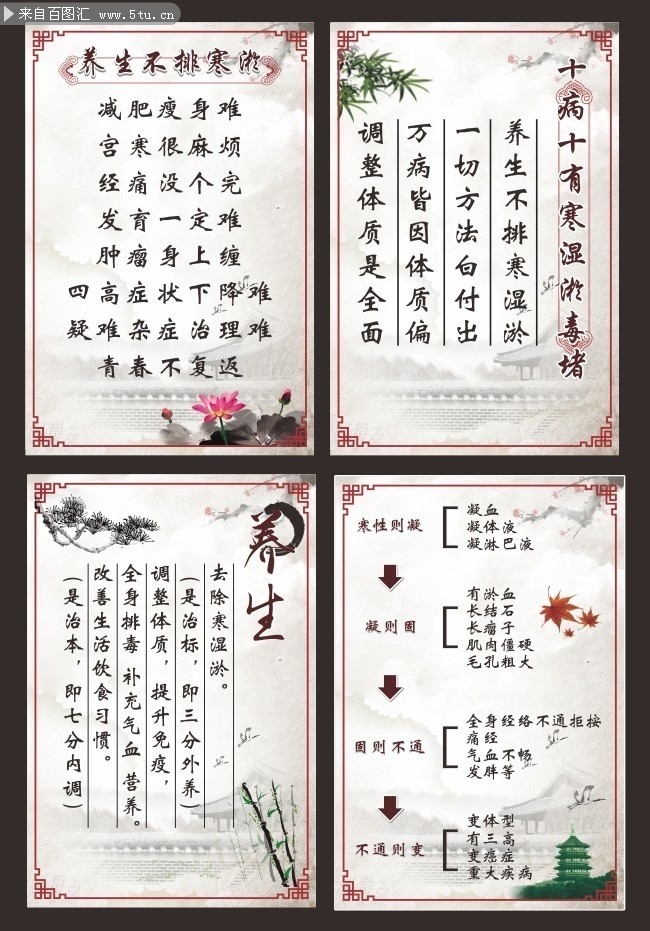 来自百图汇 www.5tu.cn
养生不排寒淤
减肥瘦身难
宫寒很麻烦
经痛没个完
发育一定难
肿瘤身上缠
四高症状下降难
疑难杂症治理难
青春不复返
十病十有寒湿淤毒堵
养生不排寒湿淤
一切方法白付出
万病皆因体质偏
调整体质是全面
养生
去除寒湿淤。
(是治标，即三分外养)
调整体质，提升免疫，
全身排毒 补充气血 营养。
改善生活饮食习惯。
(是治本，即七分内调)
寒性则凝
凝血
凝体液
凝淋巴液
凝则固
有淤血
长结石
长瘤子
肌肉僵硬
毛孔粗大
固则不通
全身经络不通拒按
痛经
气血不畅
发胖等
不通则变
变体型
有三高
变癌症
重大疾病